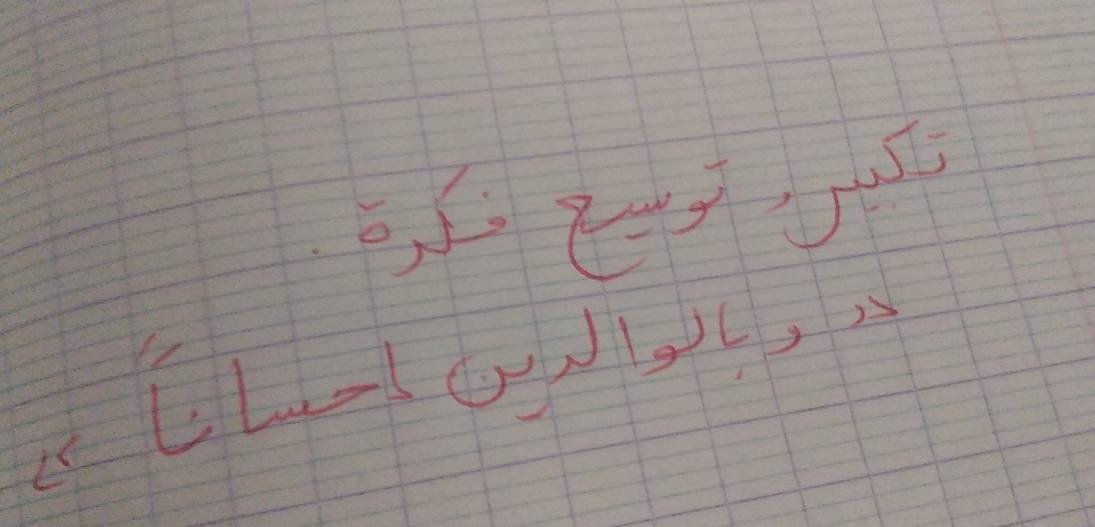 تكبير، توسيع فكرة.
"وبالوالدين إحساناً"